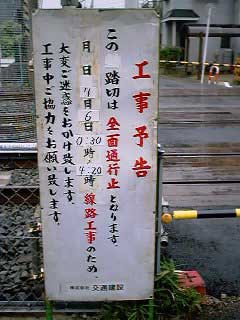 工事予告
この踏切は全面通行止となります。
月日7月6日0:30時〜時4:20線路工事のため、
大変ご迷惑をおかけ致します。
工事中ご協力をお願い致します。
株式会社 交通建設